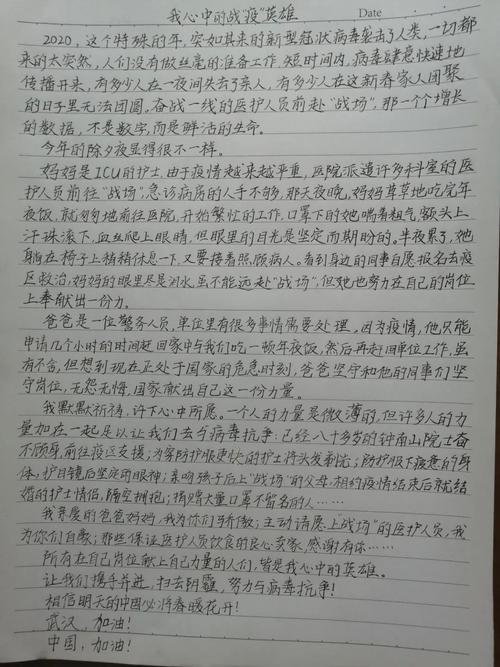 我心中的战“疫”英雄
Date
2020，这个特殊的年，突如其来的新型冠状病毒袭击了人类，一切都
来的太突然，人们没有做丝毫的准备工作，短时间内，病毒肆意快速地
传播开来，有多少人在一夜间失去了亲人，有多少人在这新春家人团聚
的日子里无法团圆。奋战一线的医护人员前赴“战场”，那一个个增长
的数据，不是数字，而是鲜活的生命。
今年的除夕夜显得很不一样。
妈妈是ICU的护士，由于疫情越来越严重，医院派遣许多科室的医
护人员前往“战场”，急诊病房的人手不够，那天夜晚，妈妈草草地吃完年
夜饭，就匆匆地前往医院，开始繁忙的工作，口罩下的她喘着粗气，额头上
汗珠滚下，血丝爬上眼睛，但眼里的目光是坚定而期盼的。半夜累了，她
躺在椅子上稍稍休息一下，又要接着照顾病人。看到身边的同事自愿报名去疫
区救治，妈妈的眼里尽是泪水，虽不能远赴“战场”，但她也努力在自己的岗位
上奉献出一份力。
爸爸是一位警务人员，单位里有很多事情需要处理。因为疫情，他只能
申请几个小时的时间赶回家中与我们吃一顿年夜饭，然后再赶回单位工作，虽
有不舍，但想到现在正处于国家的危急时刻，爸爸坚守和他的同事们坚
守岗位，无怨无悔，国家献出自己这一份力量。
我默默祈祷，许下心中所愿。一个人的力量是微薄的，但许多人的力
量加在一起是以让我们去与病毒抗争：已经八十多岁的钟南山院士奋
不顾身，前往疫区支援；为穿防护服更快的护士将头发剃光；防护服下疲惫的身
体，护目镜后坚定的眼神；亲吻孩子后上“战场”的父母，相约疫情结束后就结
婚的护士情侣，隔空拥抱；捐赠大量口罩不留名的人……
我尊爱的爸爸妈妈，我为你们骄傲；主动请愿上“战场”的医护人员，我
为你们自豪；那些保证医护人员饮食的良心卖家，感谢有你……
所有在自己岗位献上自己力量的人们，皆是我心中的英雄。
让我们携手并进，扫去阴霾，努力与病毒抗争！
相信明天的中国必将春暖花开！
武汉，加油！
中国，加油！